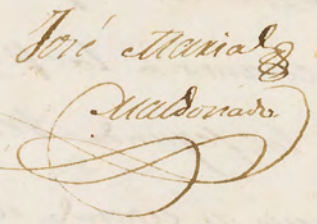 José Maria
Maldonado